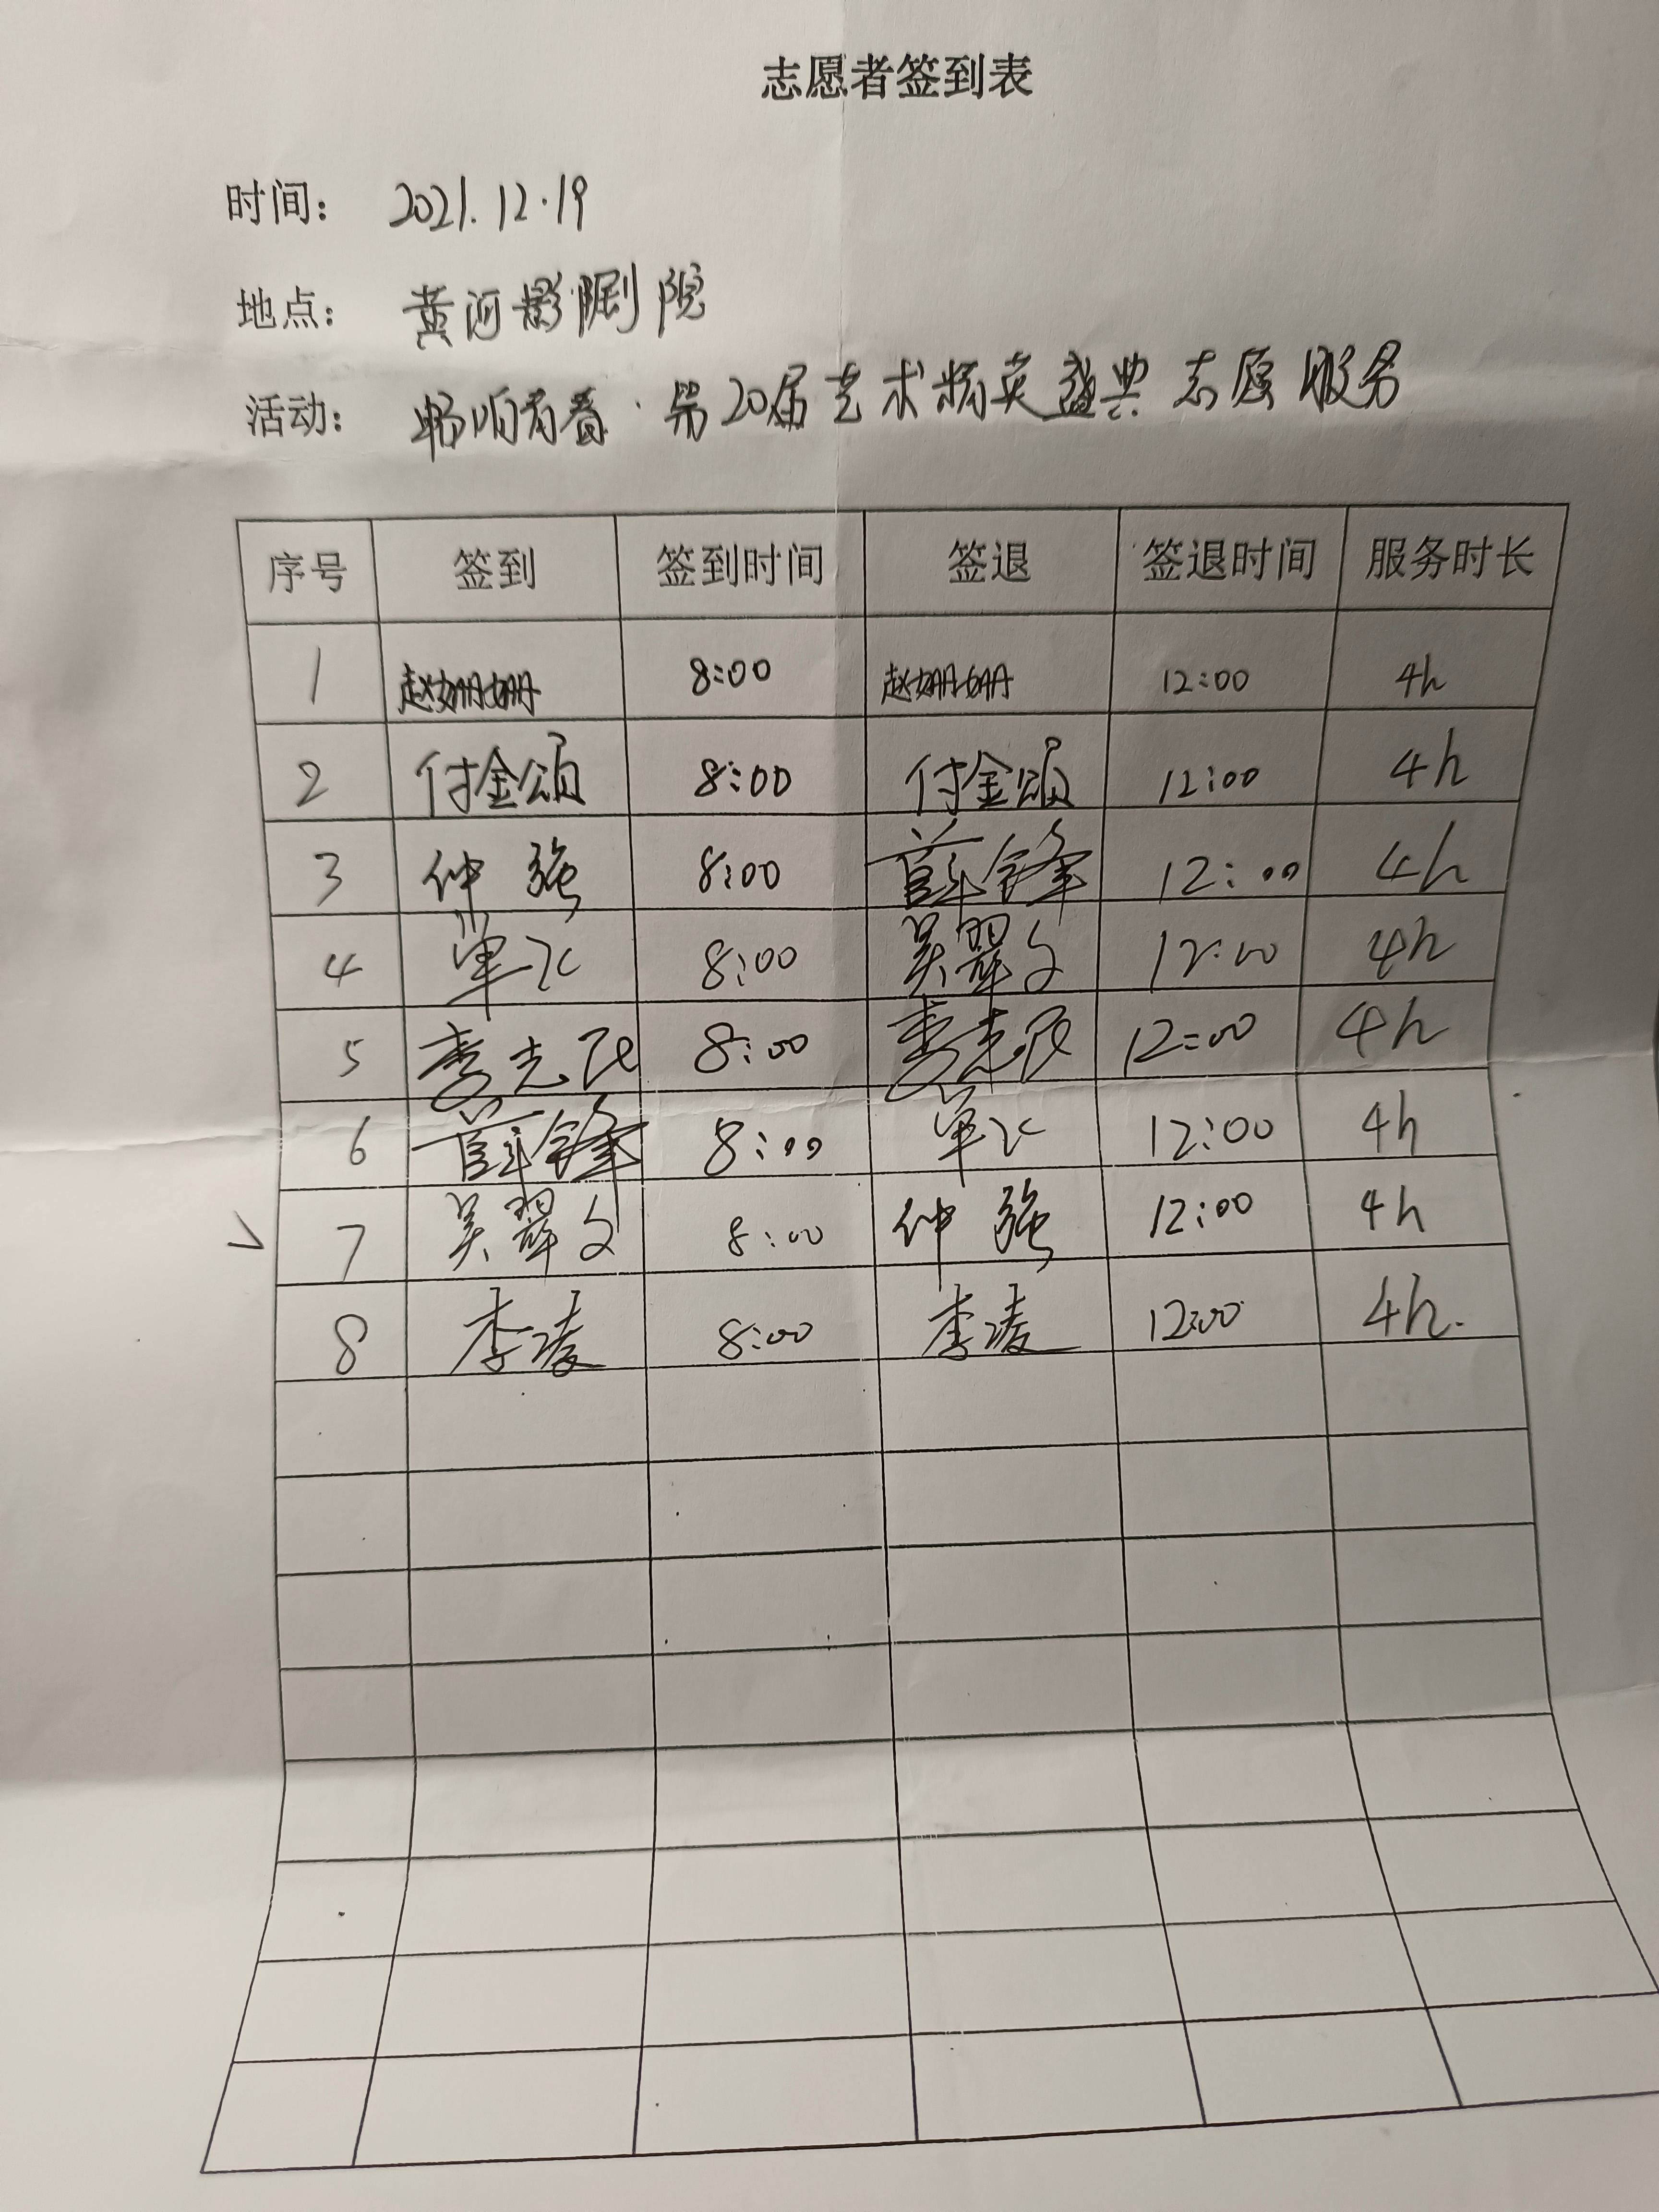 志愿者签到表
时间： 2021.12.19
地点： 黄河影剧院
活动： 畅响青春·第20届艺术精英盛典志愿服务
序号 签到 签到时间 签退 签退时间 服务时长
1 赵姗姗 8:00 赵姗姗 12:00 4h
2 付金颂 8:00 付金颂 12:00 4h
3 仲强 8:00 薛锋 12:00 4h
4 单 8:00 吴翠文 12:00 4h
5 李志民 8:00 李志民 12:00 4h
6 薛锋 8:00 单 12:00 4h
7 吴翠文 8:00 仲强 12:00 4h
8 李凌 8:00 李凌 12:00 4h.